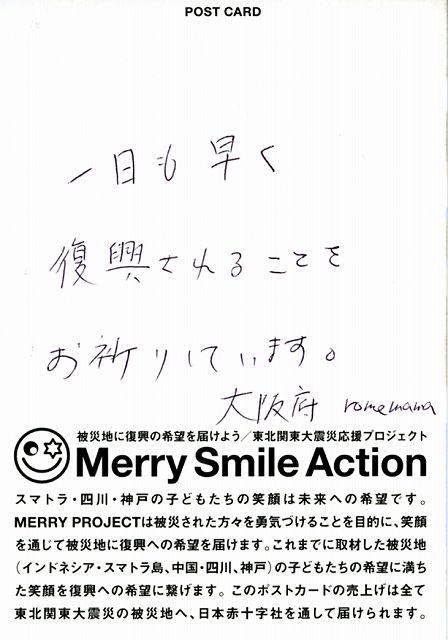 POST CARD
一日も早く
復興されることを
お祈りしています。
大阪府 romemama
被災地に復興の希望を届けよう／東北関東大震災応援プロジェクト
Merry Smile Action
スマトラ・四川・神戸の子どもたちの笑顔は未来への希望です。
MERRY PROJECTは被災された方々を勇気づけることを目的に、笑顔
を通じて被災地に復興への希望を届けます。これまでに取材した被災地
（インドネシア・スマトラ島、中国・四川、神戸）の子どもたちの希望に満ち
た笑顔を復興への希望に繋げます。このポストカードの売上げは全て
東北関東大震災の被災地へ、日本赤十字社を通して届けられます。